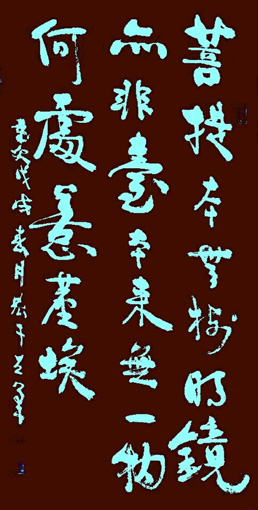 菩提本無樹明鏡
亦非臺本來無一物
何處惹塵埃
歲次戊戌春月